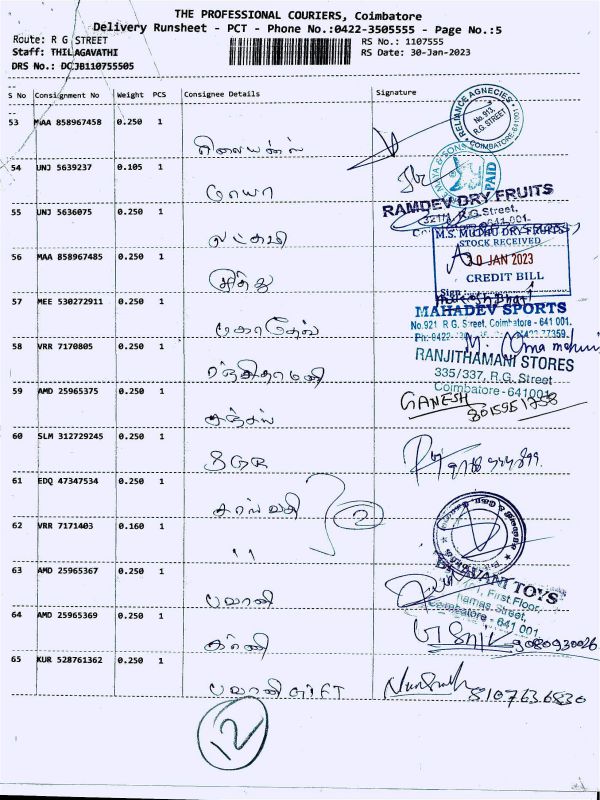 THE PROFESSIONAL COURIERS, Coimbatore
Delivery Runsheet - PCT - Phone No.:0422-3505555 - Page No.:5
Route: R G STREET
RS No.: 1107555
Staff: THILAGAVATHI
RS Date: 30-Jan-2023
DRS No.: DCJB110755505
S No Consignment No Weight PCS Consignee Details Signature
53 MAA 858967458 0.250 1
RELIANCE AGNECIES
No.913,
R.G. STREET
COIMBATORE-641001
ரிலையன்ஸ்
54 UNJ 5639237 0.105 1
& SONS
PAID
மாயா
RAMDEV DRY FRUITS
R.G.Street,
55 UNJ 5636075 0.250 1
641 001.
M.S. MUTHU DRY FRUITS
STOCK RECEIVED
லட்சுமி
56 MAA 858967485 0.250 1
30 JAN 2023
CREDIT BILL
Sign
முத்து
57 MEE 530272911 0.250 1
MAHADEV SPORTS
No.921 R G. Street, Coimbatore - 641 001.
மகாதேவ்
58 VRR 7170805 0.250 1
RANJITHAMANI STORES
335/337, R.G. Street
Coimbatore - 641001
ரஞ்சிதாமணி
59 AMD 25965375 0.250 1
GANESH
60 SLM 312729245 0.250 1
61 EDQ 47347534 0.250 1
2
62 VRR 7171403 0.160 1
"
63 AMD 25965367 0.250 1
TOYS
First Floor,
Street,
Coimbatore - 641 001
பவானி
64 AMD 25965369 0.250 1
9080930026
65 KUR 528761362 0.250 1
பவானி கிப்ட்
8107636830
12